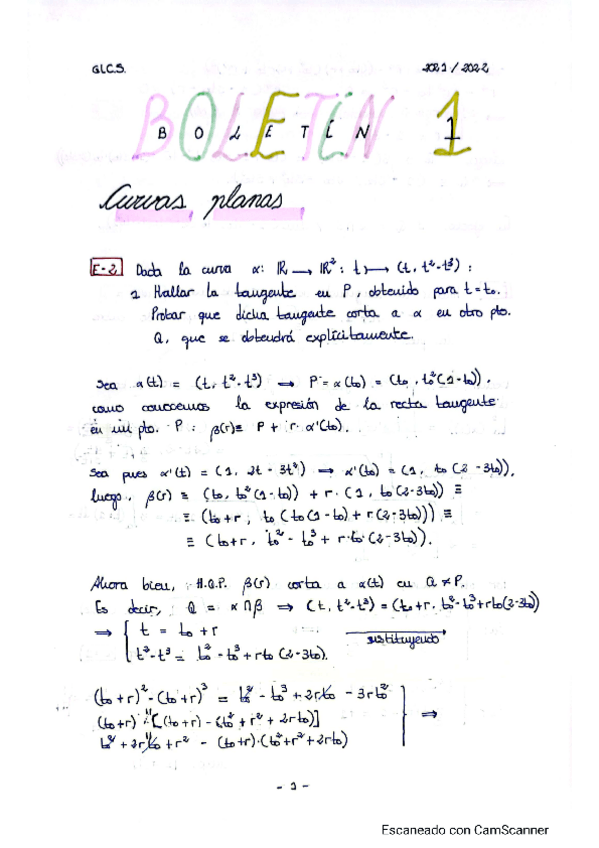 G.L.C.S. 2021 / 2022
BOLETÍN 1
BOLETÍN 1
Curvas planas
E-2. Dada la curva α: ℝ → ℝ²: t ↦ (t, t²-t³) :
1 Hallar la tangente en P, obtenido para t=t₀.
Probar que dicha tangente corta a α en otro pto.
Q, que se obtendrá explícitamente.
Sea α(t) = (t, t²-t³) → P = α(t₀) = (t₀, t₀²(1-t₀)),
como conocemos la expresión de la recta tangente
en un pto. P : β(r) ≡ P + r·α'(t₀).
Sea pues α'(t) = (1, 2t - 3t²) ⇒ α'(t₀) = (1, t₀(2-3t₀)),
luego, β(r) ≡ (t₀, t₀²(1-t₀)) + r·(1, t₀(2-3t₀)) ≡
≡ (t₀+r, t₀(t₀(1-t₀) + r(2-3t₀))) ≡
≡ (t₀+r, t₀² - t₀³ + r·t₀·(2-3t₀)).
Ahora bien, H.Q.P. β(r) corta a α(t) en Q ≠ P.
Es decir, Q = α ∩ β ⇒ (t, t²-t³) = (t₀+r, t₀²-t₀³+rt₀(2-3t₀))
⇒ { t = t₀ + r sustituyendo
t²-t³ = t₀² - t₀³ + rt₀(2-3t₀).
(t₀+r)² - (t₀+r)³ = t₀² - t₀³ + 2rt₀ - 3rt₀²
(t₀+r)·[(t₀+r) - (t₀² + r² + 2rt₀)] ⇒
t₀² + 2rt₀ + r² - (t₀+r)·(t₀²+r²+2rt₀)
- 1 -
Escaneado con CamScanner